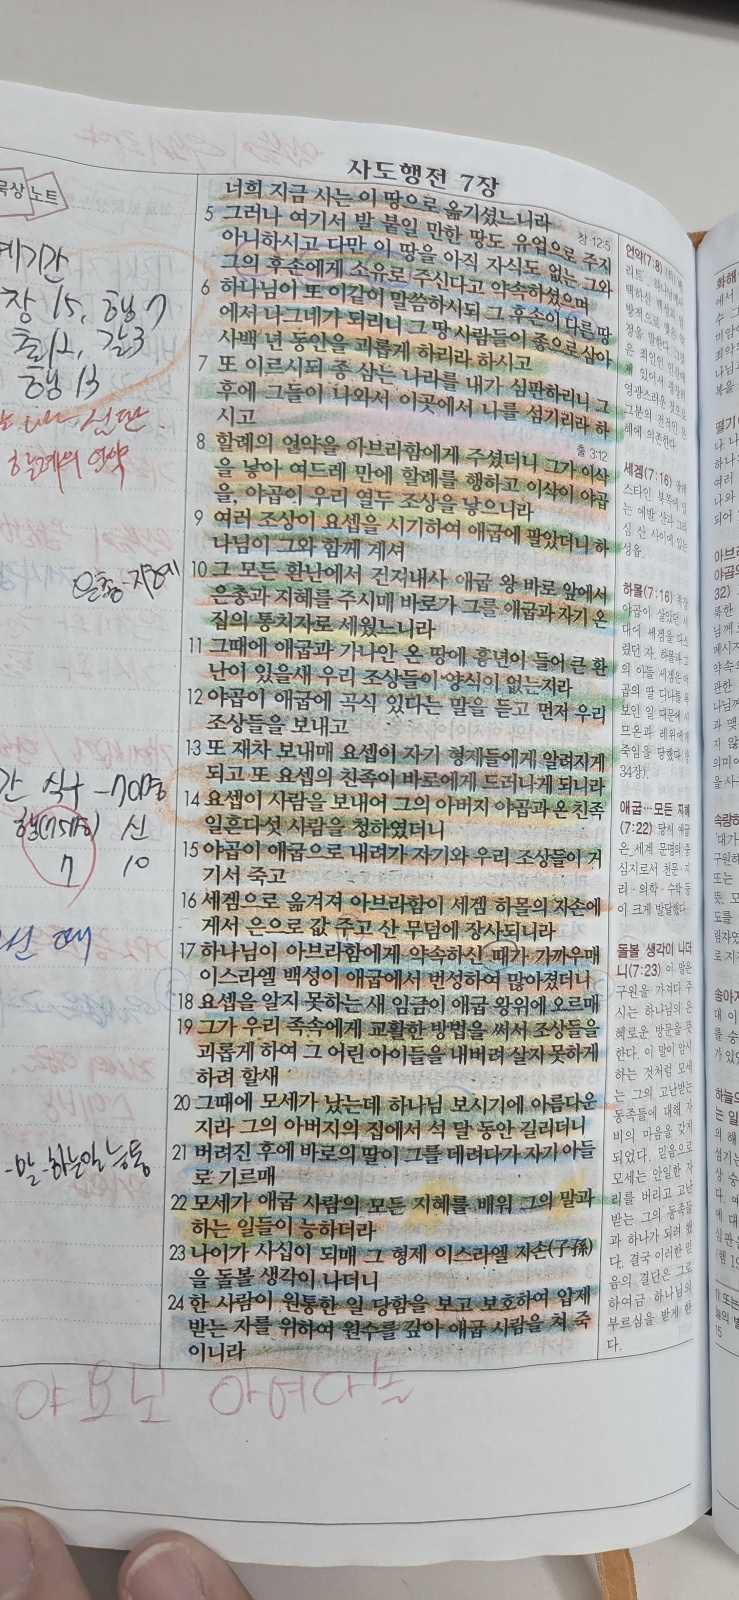 사도행전 7장
묵상 노트
너희 지금 사는 이 땅으로 옮기셨느니라
5 그러나 여기서 발 붙일 만한 땅도 유업으로 주지
창 12:5
아니하시고 다만 이 땅을 아직 자식도 없는 그와
그의 후손에게 소유로 주신다고 약속하셨으며
6 하나님이 또 이같이 말씀하시되 그 후손이 다른 땅
에서 나그네가 되리니 그 땅 사람들이 종으로 삼아
사백 년 동안을 괴롭게 하리라 하시고
7 또 이르시되 종 삼는 나라를 내가 심판하리니 그
후에 그들이 나와서 이곳에서 나를 섬기리라 하
시고
출 3:12
8 할례의 언약을 아브라함에게 주셨더니 그가 이삭
을 낳아 여드레 만에 할례를 행하고 이삭이 야곱
을, 야곱이 우리 열두 조상을 낳으니라
9 여러 조상이 요셉을 시기하여 애굽에 팔았더니 하
나님이 그와 함께 계셔
10 그 모든 환난에서 건져내사 애굽 왕 바로 앞에서
은총과 지혜를 주시매 바로가 그를 애굽과 자기 온
집의 통치자로 세웠느니라
11 그때에 애굽과 가나안 온 땅에 흉년이 들어 큰 환
난이 있을새 우리 조상들이 양식이 없는지라
12 야곱이 애굽에 곡식 있다는 말을 듣고 먼저 우리
조상들을 보내고
13 또 재차 보내매 요셉이 자기 형제들에게 알려지게
되고 또 요셉의 친족이 바로에게 드러나게 되니라
14 요셉이 사람을 보내어 그의 아버지 야곱과 온 친족
일흔다섯 사람을 청하였더니
15 야곱이 애굽으로 내려가 자기와 우리 조상들이 거
기서 죽고
16 세겜으로 옮겨져 아브라함이 세겜 하몰의 자손에
게서 은으로 값 주고 산 무덤에 장사되니라
17 하나님이 아브라함에게 약속하신 때가 가까우매
이스라엘 백성이 애굽에서 번성하여 많아졌더니
18 요셉을 알지 못하는 새 임금이 애굽 왕위에 오르매
19 그가 우리 족속에게 교활한 방법을 써서 조상들을
괴롭게 하여 그 어린 아이들을 내버려 살지 못하게
하려 할새
20 그때에 모세가 났는데 하나님 보시기에 아름다운
지라 그의 아버지의 집에서 석 달 동안 길리더니
21 버려진 후에 바로의 딸이 그를 데려다가 자기 아들
로 기르매
22 모세가 애굽 사람의 모든 지혜를 배워 그의 말과
하는 일들이 능하더라
23 나이가 사십이 되매 그 형제 이스라엘 자손(子孫)
을 돌볼 생각이 나더니
24 한 사람이 원통한 일 당함을 보고 보호하여 압제
받는 자를 위하여 원수를 갚아 애굽 사람을 쳐 죽
이니라
창 15, 행 7
출12, 갈3
행 13
할례의 언약
은총-지혜
식구 -70명
신
7 10
-말-하는일 능통
언약(7:8)
세겜(7:16)
스타인 북쪽에 있
는 에발 산과 그리
심 산 사이에 있는
성읍.
하몰(7:16) 족장
야곱이 살았던 시
대에 세겜을 다스
렸던 자. 하몰과 그
의 아들 세겜은 야
곱의 딸 디나를 욕
보인 일 때문에 시
므온과 레위에게
죽임을 당했다(창
34장).
애굽…모든 지혜
(7:22) 당시 애굽
은 세계 문명의 중
심지로서 천문·지
리·의학·수학 등
이 크게 발달했다.
돌볼 생각이 나더
니(7:23) 이 말은
구원을 가져다 주
시는 하나님의 은
혜로운 방문을 뜻
한다. 이 말이 암시
하는 것처럼 모세
는 그의 고난받는
동족들에 대해 자
비의 마음을 갖게
되었다. 믿음으로
모세는 안일한 자
리를 버리고 고난
받는 그의 동족들
과 하나가 되려 했
다. 결국 이러한 믿
음의 결단은 그로
하여금 하나님의
부르심을 받게 한
다.